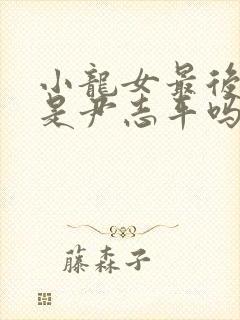 小龍女最後
是尹志平嗎
藤森子